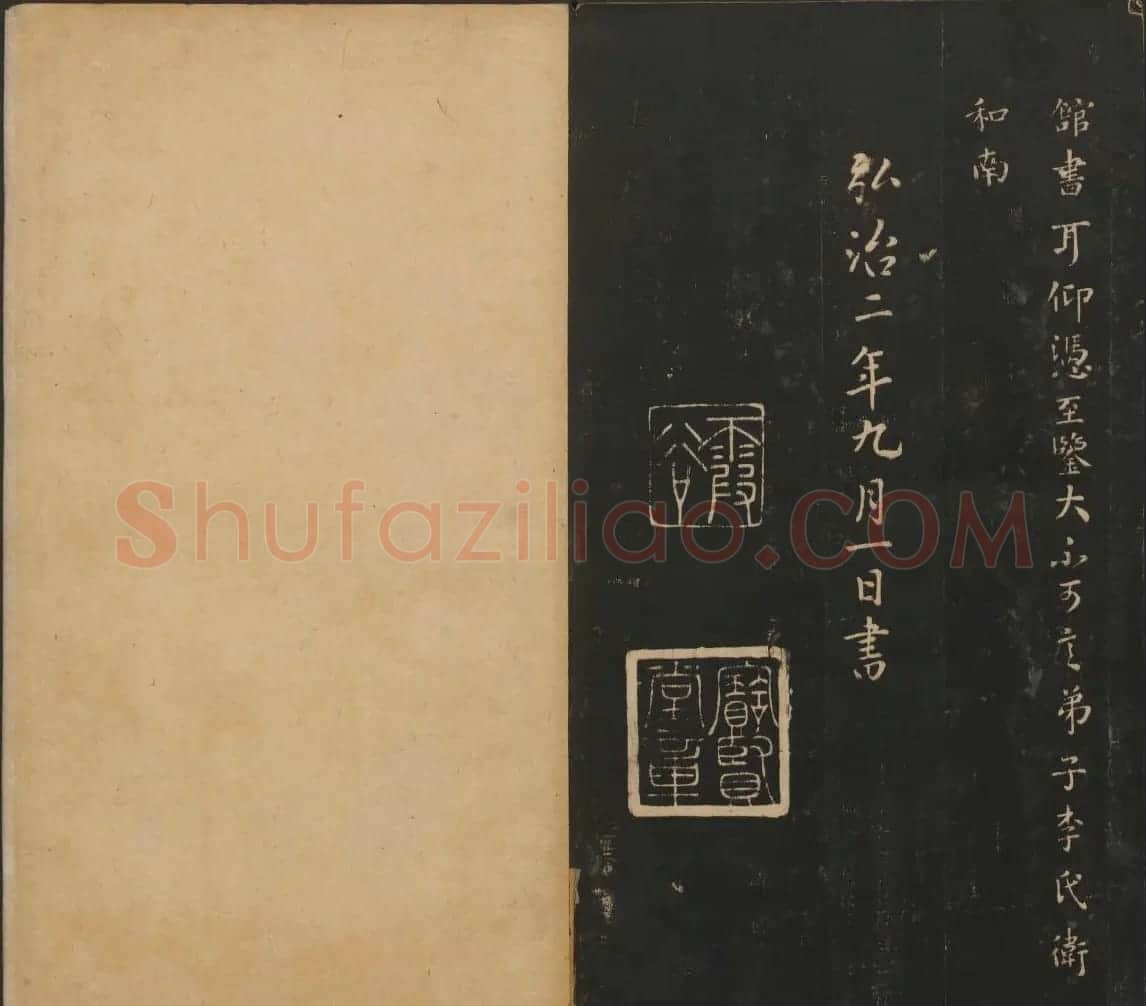 舘書耳仰憑至鑒大不可言弟子李氏衛
和南
弘治二年九月一日書
寶賢
堂章
Shufaziliao.COM